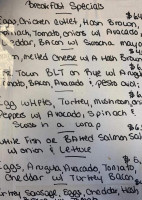 Breakfast Specials
Eggs, Chicken Cutlet, Hash Brown,
Spinach, Tomato, onions w/ Avocado
Cheddar, Bacon w/ Sriracha mayo
melted Cheese w/ A Hash Brown
Town BLT on Rye w/ Arugula
Tomato, Bacon, Avocado, & pesto aioli
Egg whites, Turkey, mushroom, onion
Peppers w/ Avocado, Spinach &
Swiss in a wrap
White Fish or Baked Salmon Salad
w/ onion & Lettuce
Eggs, Arugula, Avocado, Tomato,
Cheddar w/ Turkey Bacon
Turkey Sausage, Eggs, Cheddar, Hash